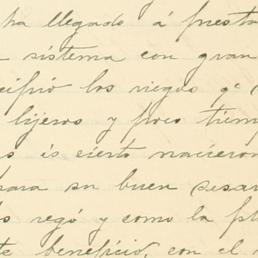 ha llegado á
sistema con gran
los riegos qe
lijeros y poco tiem
is cierto nacieron
para su buen desar
regó y como la pl
beneficio, con el